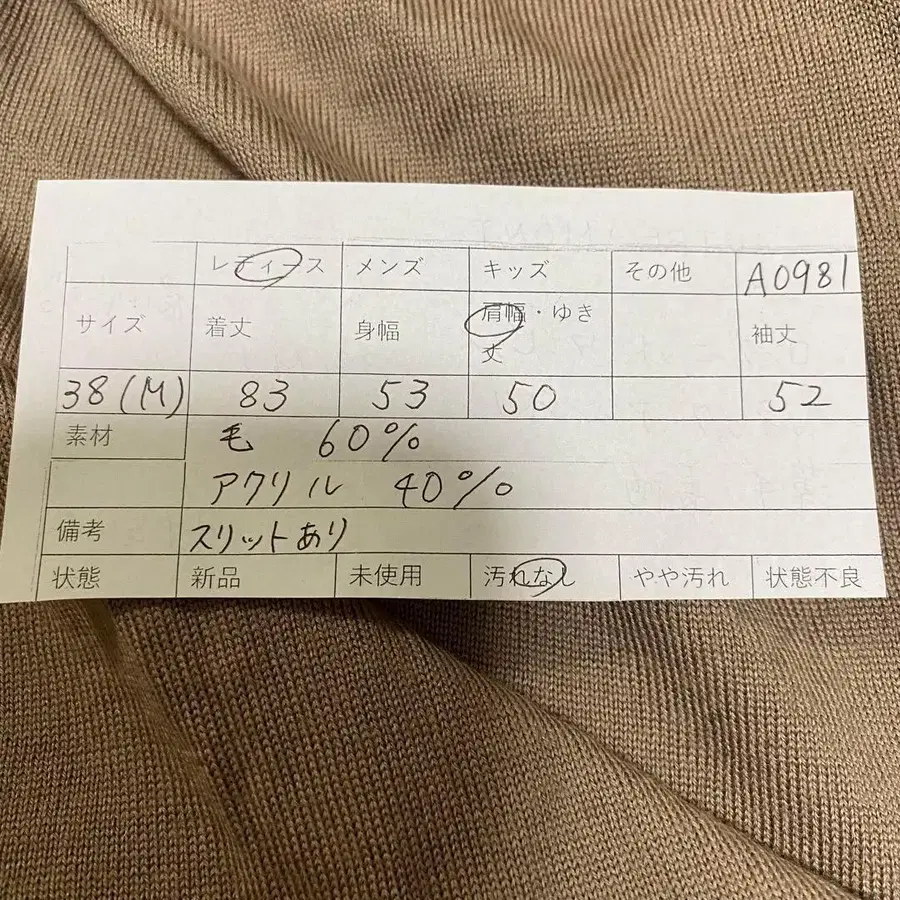 レディース メンズ キッズ その他 A0981
サイズ 着丈 身幅 肩幅・ゆき丈 袖丈
38(M) 83 53 50 52
素材 毛 60%
アクリル 40%
備考 スリットあり
状態 新品 未使用 汚れなし やや汚れ 状態不良